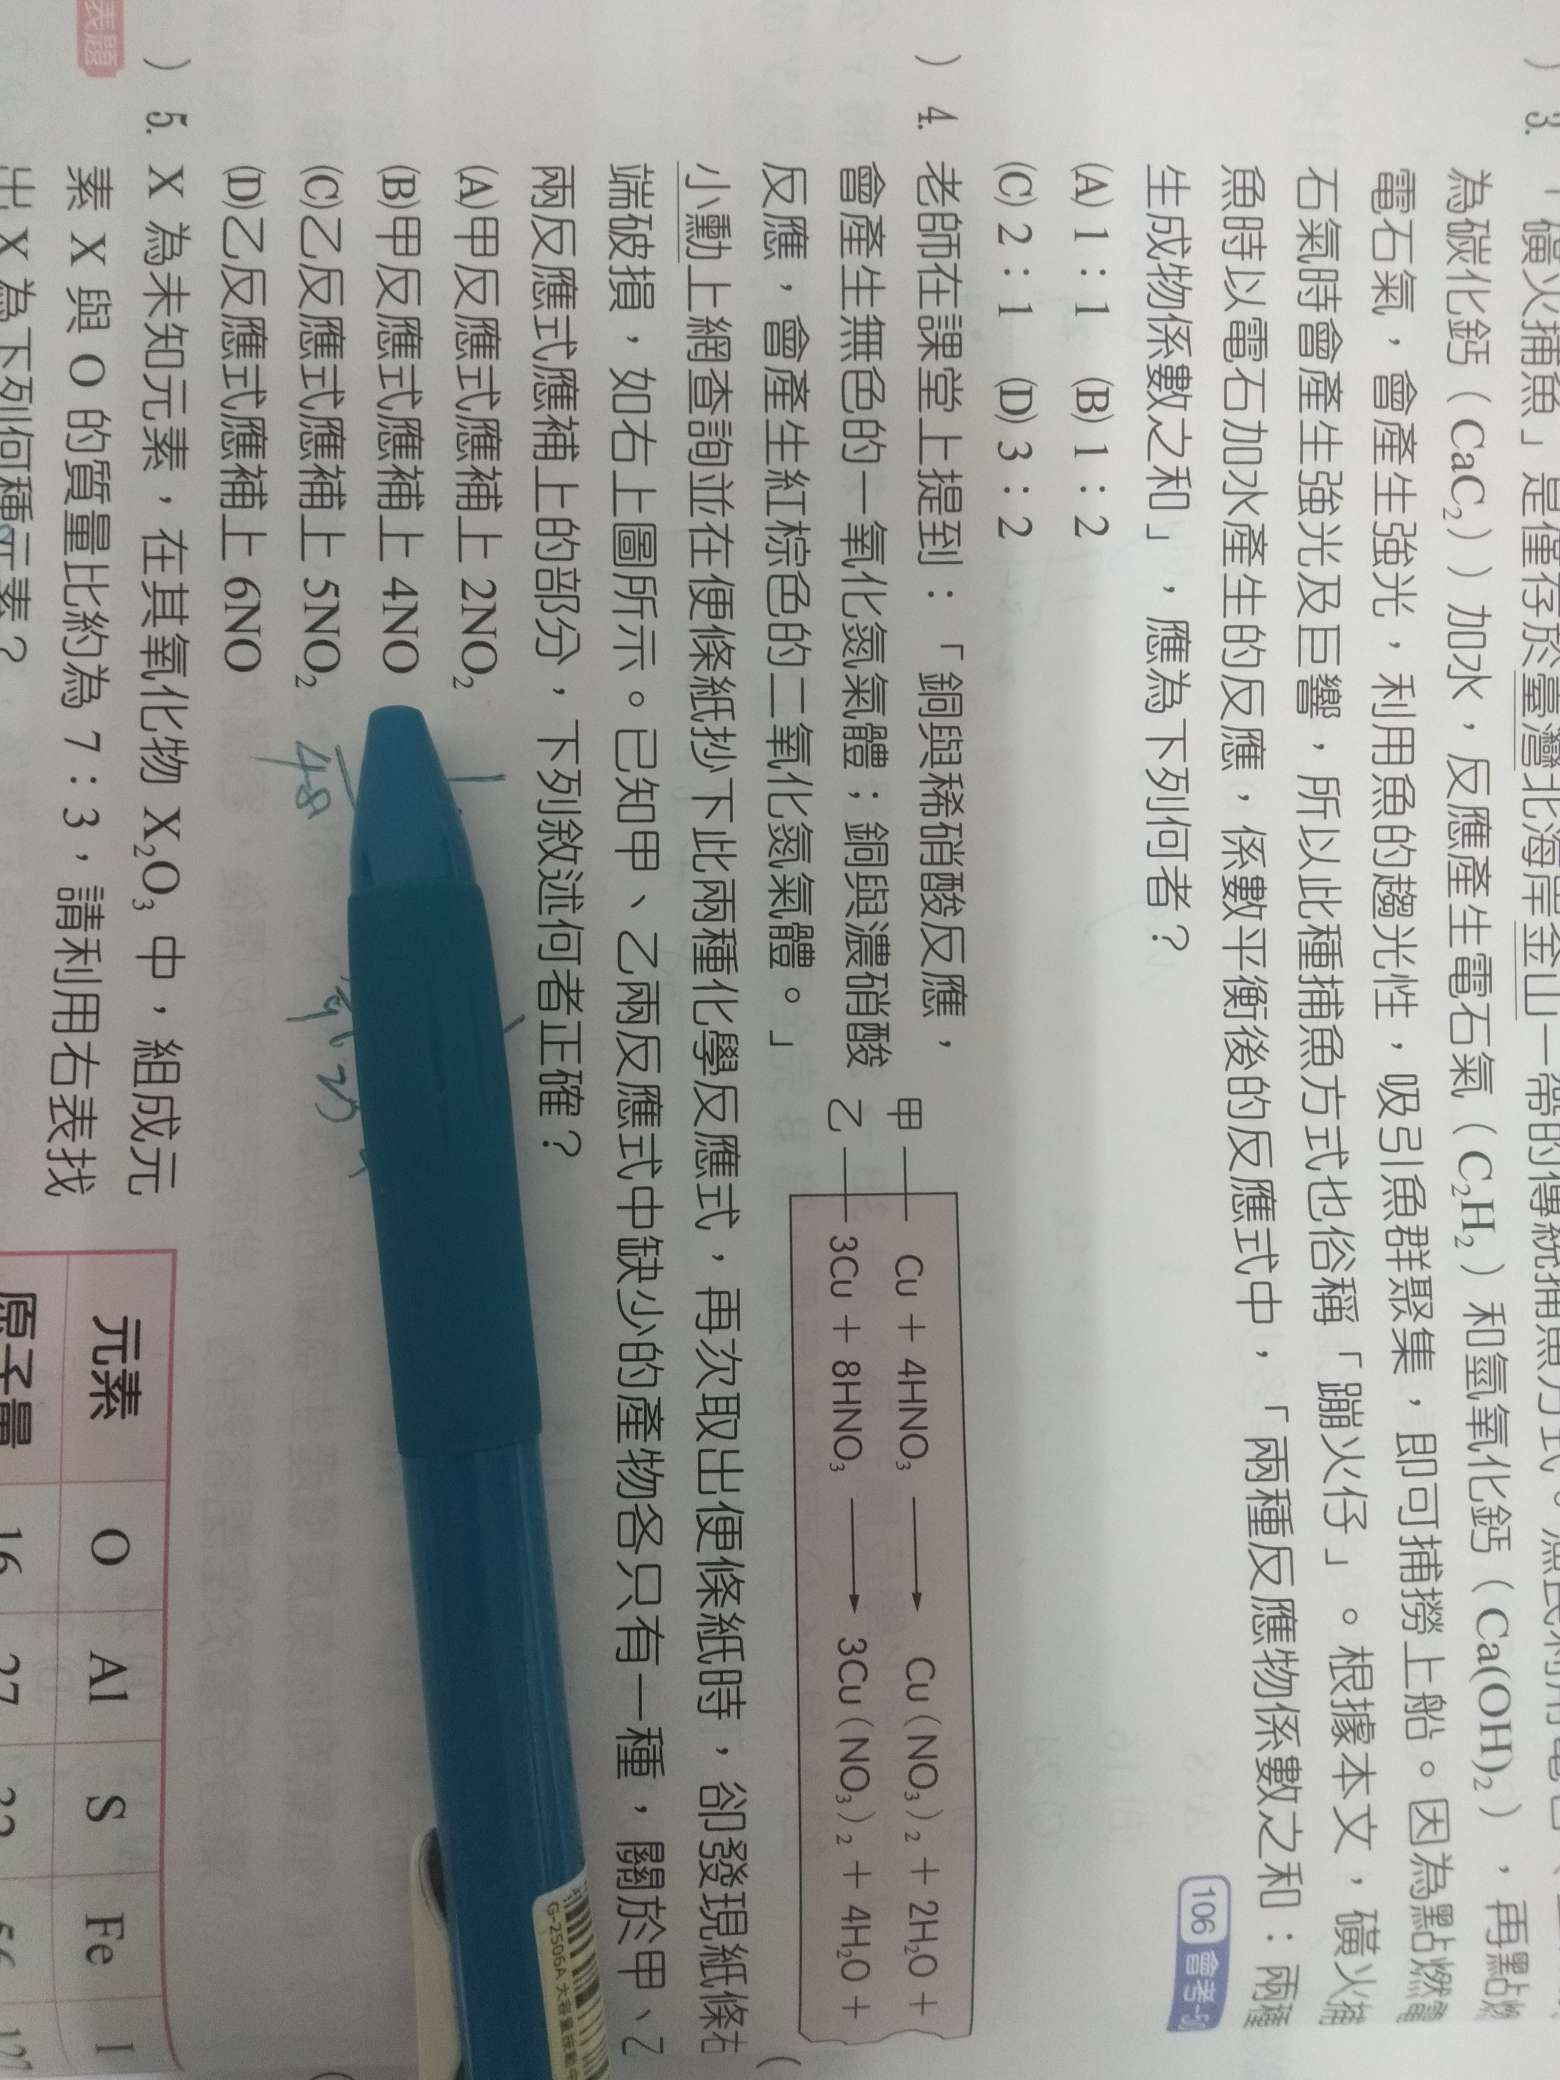 ) 3. 「磺火捕魚」是僅存於臺灣北海岸金山一帶的傳統捕魚方式。
為碳化鈣(CaC₂))加水,反應產生電石氣(C₂H₂)和氫氧化鈣(Ca(OH)₂),再點燃
電石氣,會產生強光,利用魚的趨光性,吸引魚群聚集,即可捕撈上船。因為點燃電
石氣時會產生強光及巨響,所以此種捕魚方式也俗稱「蹦火仔」。根據本文,磺火捕
魚時以電石加水產生的反應,係數平衡後的反應式中,「兩種反應物係數之和:兩種
生成物係數之和」,應為下列何者?
106 會考
(A) 1:1 (B) 1:2
(C) 2:1 (D) 3:2
) 4. 老師在課堂上提到:「銅與稀硝酸反應,
會產生無色的一氧化氮氣體;銅與濃硝酸
反應,會產生紅棕色的二氧化氮氣體。」
甲 Cu + 4HNO₃ → Cu(NO₃)₂ + 2H₂O +
乙 3Cu + 8HNO₃ → 3Cu(NO₃)₂ + 4H₂O +
小勳上網查詢並在便條紙抄下此兩種化學反應式,再次取出便條紙時,卻發現紙條右
端破損,如右上圖所示。已知甲、乙兩反應式中缺少的產物各只有一種,關於甲、乙
兩反應式應補上的部分,下列敘述何者正確?
(A)甲反應式應補上 2NO₂
(B)甲反應式應補上 4NO
(C)乙反應式應補上 5NO₂
(D)乙反應式應補上 6NO
48
表題
) 5. X 為未知元素,在其氧化物 X₂O₃ 中,組成元
素 X 與 O 的質量比約為 7:3,請利用右表找
出 X 為下列何種元素?
元素 O Al S Fe I
原子量 16 27 32 56 127
G-2506A 大容量按動中